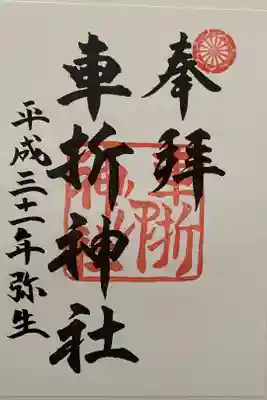 奉拝
車折神社
平成三十一年弥生
車折神社